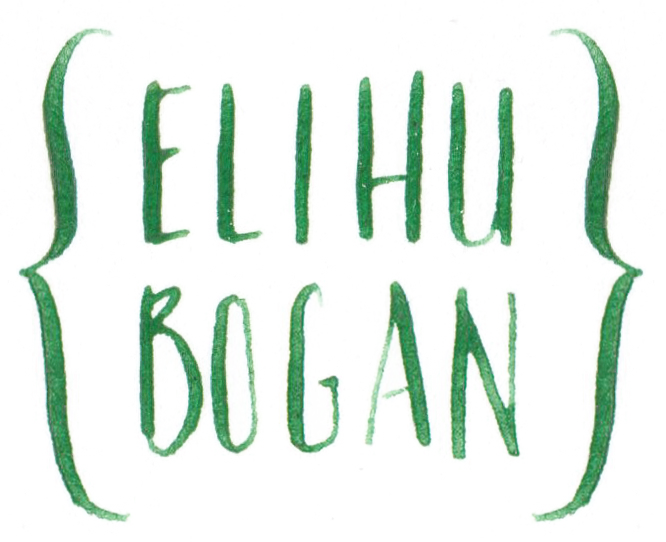 {ELIHU
BOGAN}